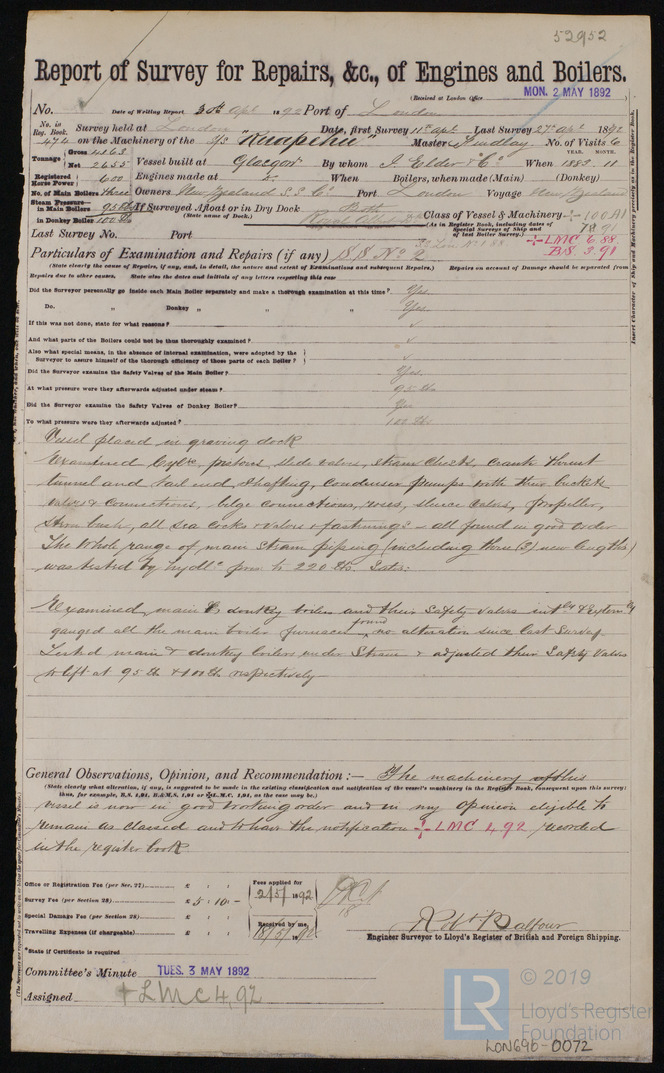 52952
Report of Survey for Repairs, &c., of Engines and Boilers.
(Received at London Office MON. 2 MAY 1892 )
No. Date of Writing Report 30th Apl 1892 Port of London
No. in Reg. Book. Survey held at London Date, first Survey 11th Apl. Last Survey 27th Apl. 1892
474 on the Machinery of the S/S "Ruapehu" Master Findlay No. of Visits 6
Tonnage { Gross 4163 YEAR. MONTH.
Net 2655 Vessel built at Glasgow By whom J. Elder & Co. When 1883. 11
Registered Horse Power 600 Engines made at When Boilers, when made (Main) (Donkey)
No. of Main Boilers three Owners New Zealand S.S. Co. Port London Voyage New Zealand
Steam Pressure— in Main Boilers 95 lb If Surveyed Afloat or in Dry Dock Both
in Donkey Boiler 100 lb (State name of Dock.) Royal Albert Class of Vessel & Machinery 100 A1
(As in Register Book, including dates of Special Surveys of Ship and of last Boiler Survey.)
Last Survey No. Port
LMC 6.88
BS. 3.91
Particulars of Examination and Repairs (if any) SS No 2
(State clearly the cause of Repairs, if any, and, in detail, the nature and extent of Examinations and subsequent Repairs.) Repairs on account of Damage should be separated from
Repairs due to other causes. State also the dates and initials of any letters respecting this case
Did the Surveyor personally go inside each Main Boiler separately and make a thorough examination at this time? Yes
Do. „ Donkey „ „ „ Yes
If this was not done, state for what reasons? ✓
And what parts of the Boilers could not be thus thoroughly examined? ✓
Also what special means, in the absence of internal examination, were adopted by the
Surveyor to assure himself of the thorough efficiency of those parts of each Boiler? ✓
Did the Surveyor examine the Safety Valves of the Main Boiler? Yes
At what pressure were they afterwards adjusted under steam? 95 lb
Did the Surveyor examine the Safety Valves of Donkey Boiler? Yes
To what pressure were they afterwards adjusted? 100 lb
Vessel placed in graving dock
Examined Cylrs, pistons, slide valves, steam chests, crank thrust
tunnel and tail end shafting, condenser pumps with their buckets
valves & connections, bilge connections, roses, sluice valves, propeller,
Stern bush, all sea cocks & valves & fastenings – all found in good order
The whole range of main steam piping (including three (3) new lengths)
was tested by hydlc pres to 220 lb. Satis:
Examined main & donkey boilers and their safety valves intly & externly
gauged all the main boiler furnaces found no alteration since last survey.
Tested main & donkey boilers under Steam & adjusted their Safety Valves
to lift at 95 lb & 100 lb respectively
General Observations, Opinion, and Recommendation:— The machinery of this
(State clearly what alteration, if any, is suggested to be made in the existing classification and notification of the vessel's machinery in the Register Book, consequent upon this survey;
thus, for example, B.S. 1,91, B.&M.S. 1,91 or L.M.C. 1,91, as the case may be.)
vessel is now in good working order and in my opinion eligible to
remain as classed and to have the notification LMC 4,92 recorded
in the register book
Office or Registration Fee (per Sec. 27) £ : :
Fees applied for
Survey Fee (per Section 28) £ 5 : 10 : – 2/5/1892
Special Damage Fee (per Section 28) £ : :
Received by me
Travelling Expenses (if chargeable) £ : : 18/5/1892
Robt Balfour
Engineer Surveyor to Lloyd's Register of British and Foreign Shipping.
*State if Certificate is required
Committee's Minute TUES. 3 MAY 1892
Assigned + LMC 4,92
Insert Character of Ship and Machinery precisely as in the Register Book.
LR
© 2019
Lloyd's Register
Foundation
LON696-0072